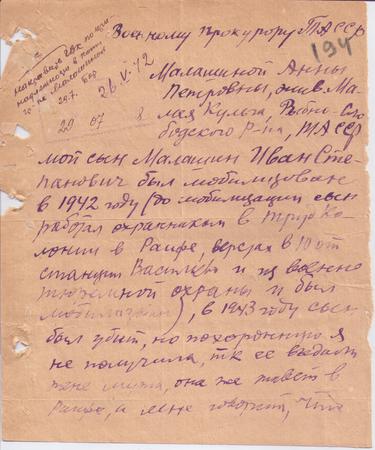 Военному прокурору ТАССР
194
26 V-42
29 07
Малашиной Анны
Петровны, жив. Ма-
лая Кульга, Рыбно-Сло-
бодского Р-на, ТАССР
мой сын Малашин Иван Сте-
панович был мобилизован
в 1942 году (до мобилизации сын
работал охранником в Труд ко-
лонии в Раифе, верстах в 10 от
станции Васильево и из военно
тюремной охраны и был
мобилизован), в 1943 году сын
был убит, но похоронную я
не получила, т.к. ее выдали
жене сына, она же живет в
Раифе, и мне говорит, что